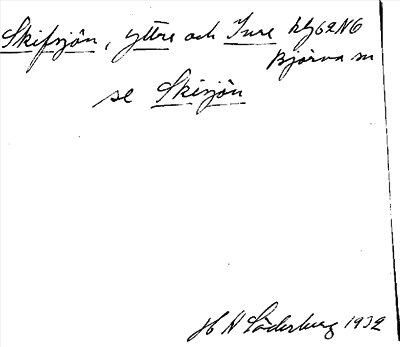 Skifsjön, yttre och Inre blg62NG
Björna sn
se Skisjön
H N Söderberg 1932